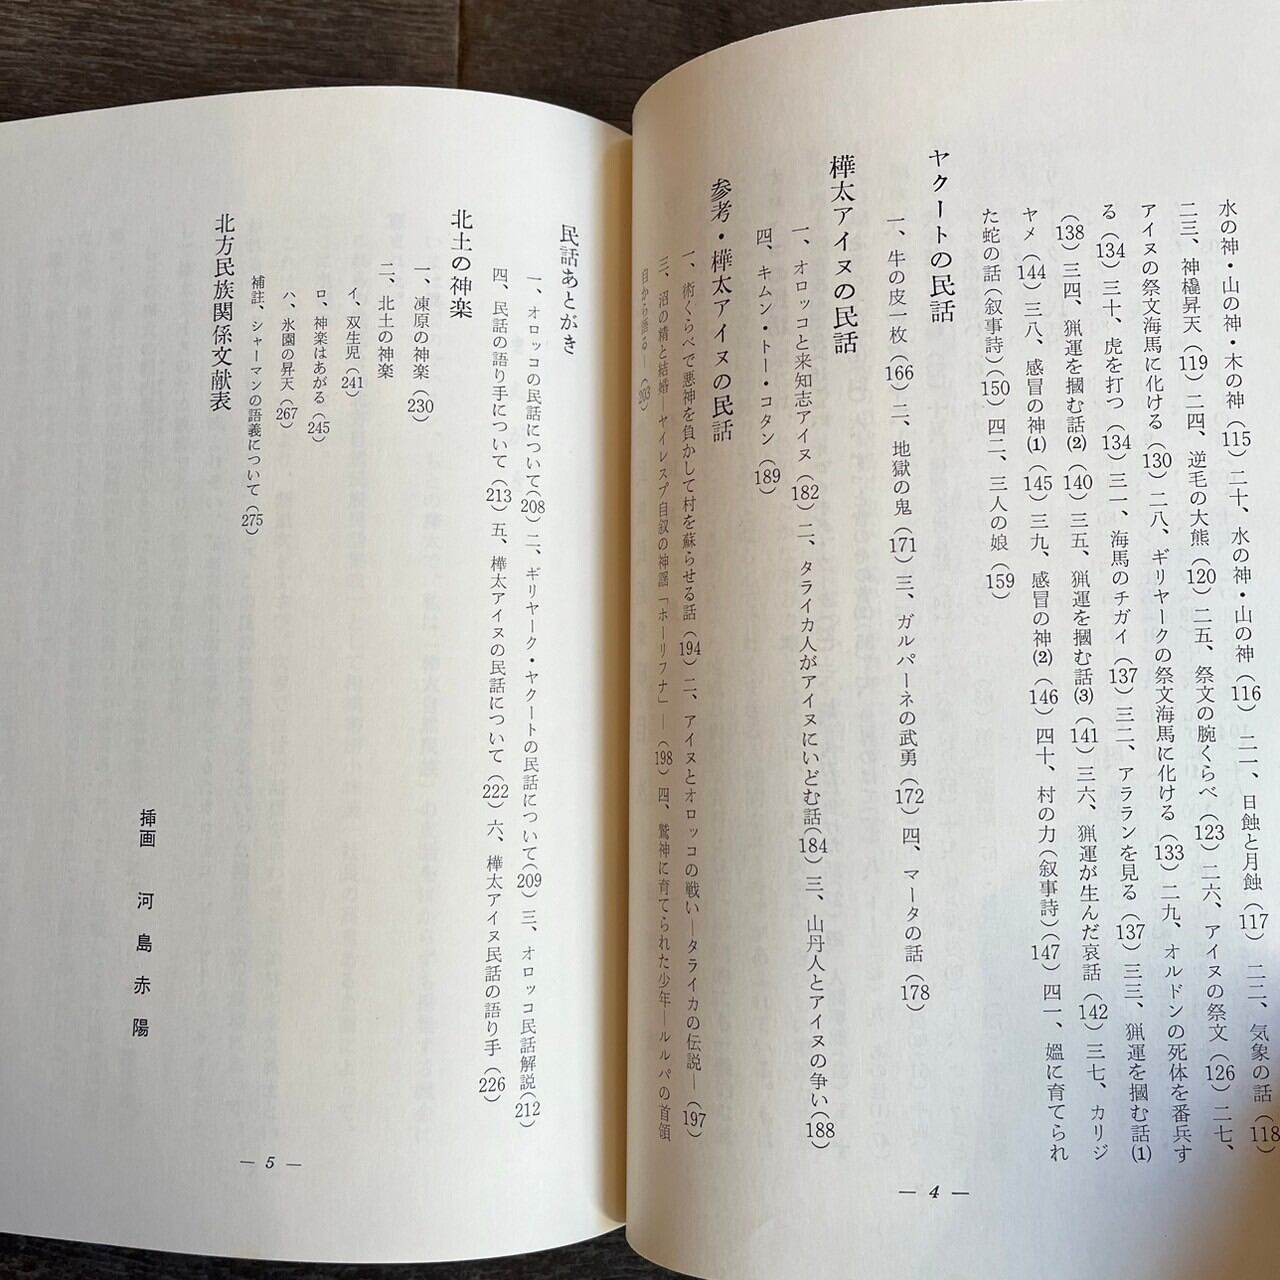 水の神・山の神・木の神(115) 二十、水の神・山の神(116) 二一、日蝕と月蝕(117) 二二、気象の話(118)
二三、神橇昇天(119) 二四、逆毛の大熊(120) 二五、祭文の腕くらべ(123) 二六、アイヌの祭文(126) 二七、
アイヌの祭文海馬に化ける(130) 二八、ギリヤークの祭文海馬に化ける(133) 二九、オルドンの死体を番兵す
る(134) 三十、虎を打つ(134) 三一、海馬のチガイ(137) 三二、アラランを見る(137) 三三、猟運を摑む話(1)
(138) 三四、猟運を摑む話(2)(140) 三五、猟運を摑む話(3)(141) 三六、猟運が生んだ哀話(142) 三七、カリジ
ヤメ(144) 三八、感冒の神(1)(145) 三九、感冒の神(2)(146) 四十、村の力(叙事詩)(147) 四一、媼に育てられ
た蛇の話(叙事詩)(150) 四二、三人の娘(159)
ヤクートの民話
一、牛の皮一枚(166) 二、地獄の鬼(171) 三、ガルパーネの武勇(172) 四、マータの話(178)
樺太アイヌの民話
一、オロッコと来知志アイヌ(182) 二、タライカ人がアイヌにいどむ話(184) 三、山丹人とアイヌの争い(188)
四、キムン・トー・コタン(189)
参考・樺太アイヌの民話
一、術くらべで悪神を負かして村を蘇らせる話(194) 二、アイヌとオロッコの戦い―タライカの伝説―(197)
三、沼の精と結婚―ヤイレスプ自叙の神謡「ホーリフナ」―(198) 四、鷲神に育てられた少年―ルルパの首領
自から語る―(203)
― 4 ―
民話あとがき
一、オロッコの民話について(208) 二、ギリヤーク・ヤクートの民話について(209) 三、オロッコ民話解説(212)
四、民話の語り手について(213) 五、樺太アイヌの民話について(222) 六、樺太アイヌ民話の語り手(226)
北土の神楽
一、凍原の神楽(230)
二、北土の神楽
イ、双生児(241)
ロ、神楽はあがる(245)
ハ、氷園の昇天(267)
補註、シャーマンの語義について(275)
北方民族関係文献表
挿画 河島赤陽
― 5 ―